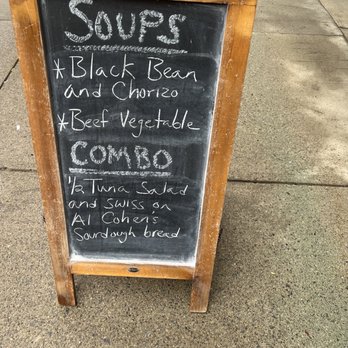 SOUPS
*Black Bean
and Chorizo
*Beef Vegetable
COMBO
½ Tuna Salad
and swiss on
Al Cohen's
Sourdough bread